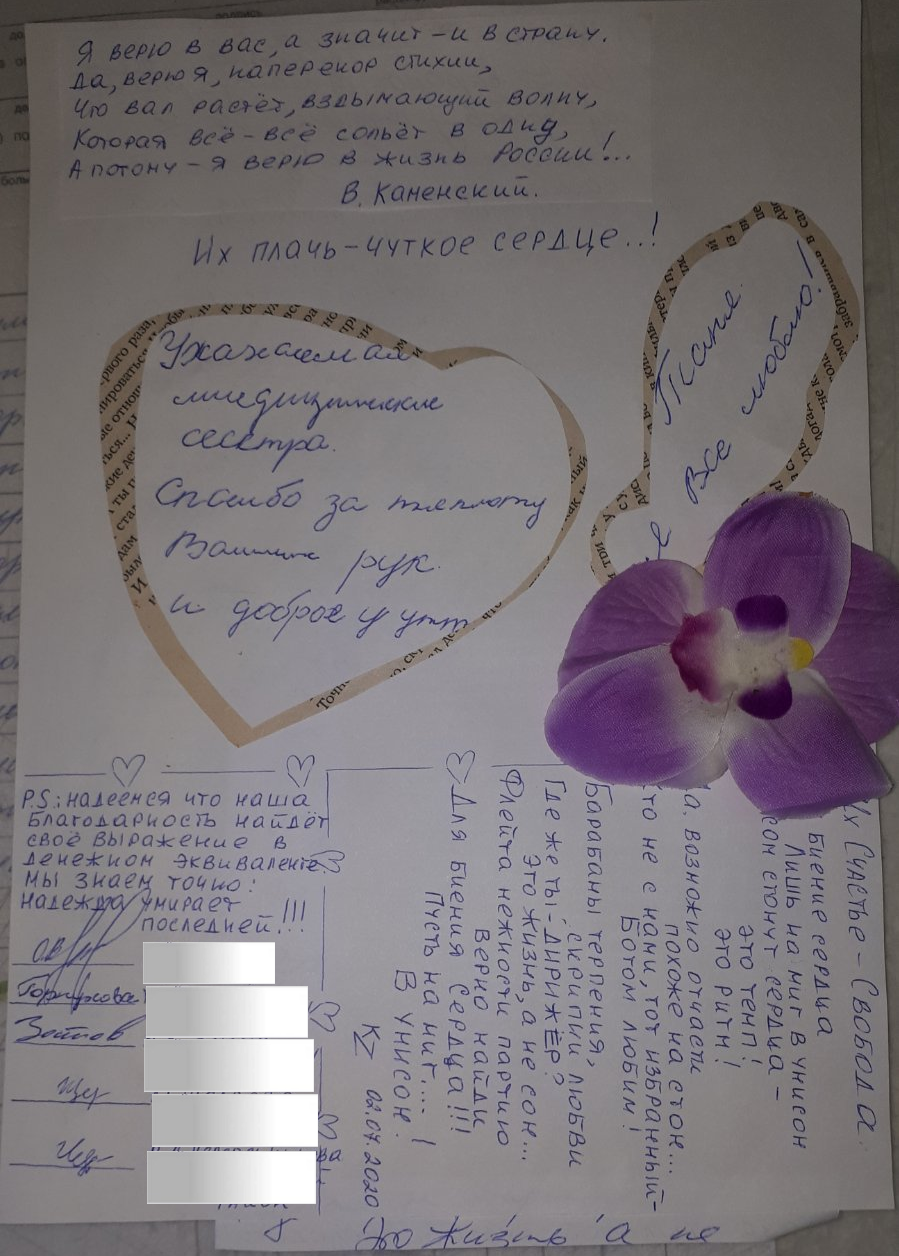 Я верю в вас, а значит – и в страну.
Да, верю я, наперекор стихии,
Что вал растёт, вздымающий волну,
Которая всё-всё сольёт в одну,
А потому – я верю в жизнь России!...
В. Каменский.
Их плачь – чуткое сердце..!
Уважаемая
медицинские
сестра.
Спасибо за теплоту
Ваших рук
и доброе утт
Псаня.
я Все люблю!
P.S.: надеемся что наша
благодарность найдёт
своё выражение в
денежном эквиваленте
Мы знаем точно:
Надежда умирает
последней!!!
Их счастье – Свобода.
Биение сердца
Лишь на миг в унисон
стонут сердца –
это темп!
это ритм!
возможно отчасти
похоже на стон...
то не с нами, тот избранный –
Богом любим!
Барабаны терпения,
скрипки любви
Где же ты – дирижёр?
Это жизнь, а не сон...
Флейта нежности партию
верно найди
Для биения сердца!!!
Пусть на миг....!
В унисон.
02.07.2020
Это жизнь а не